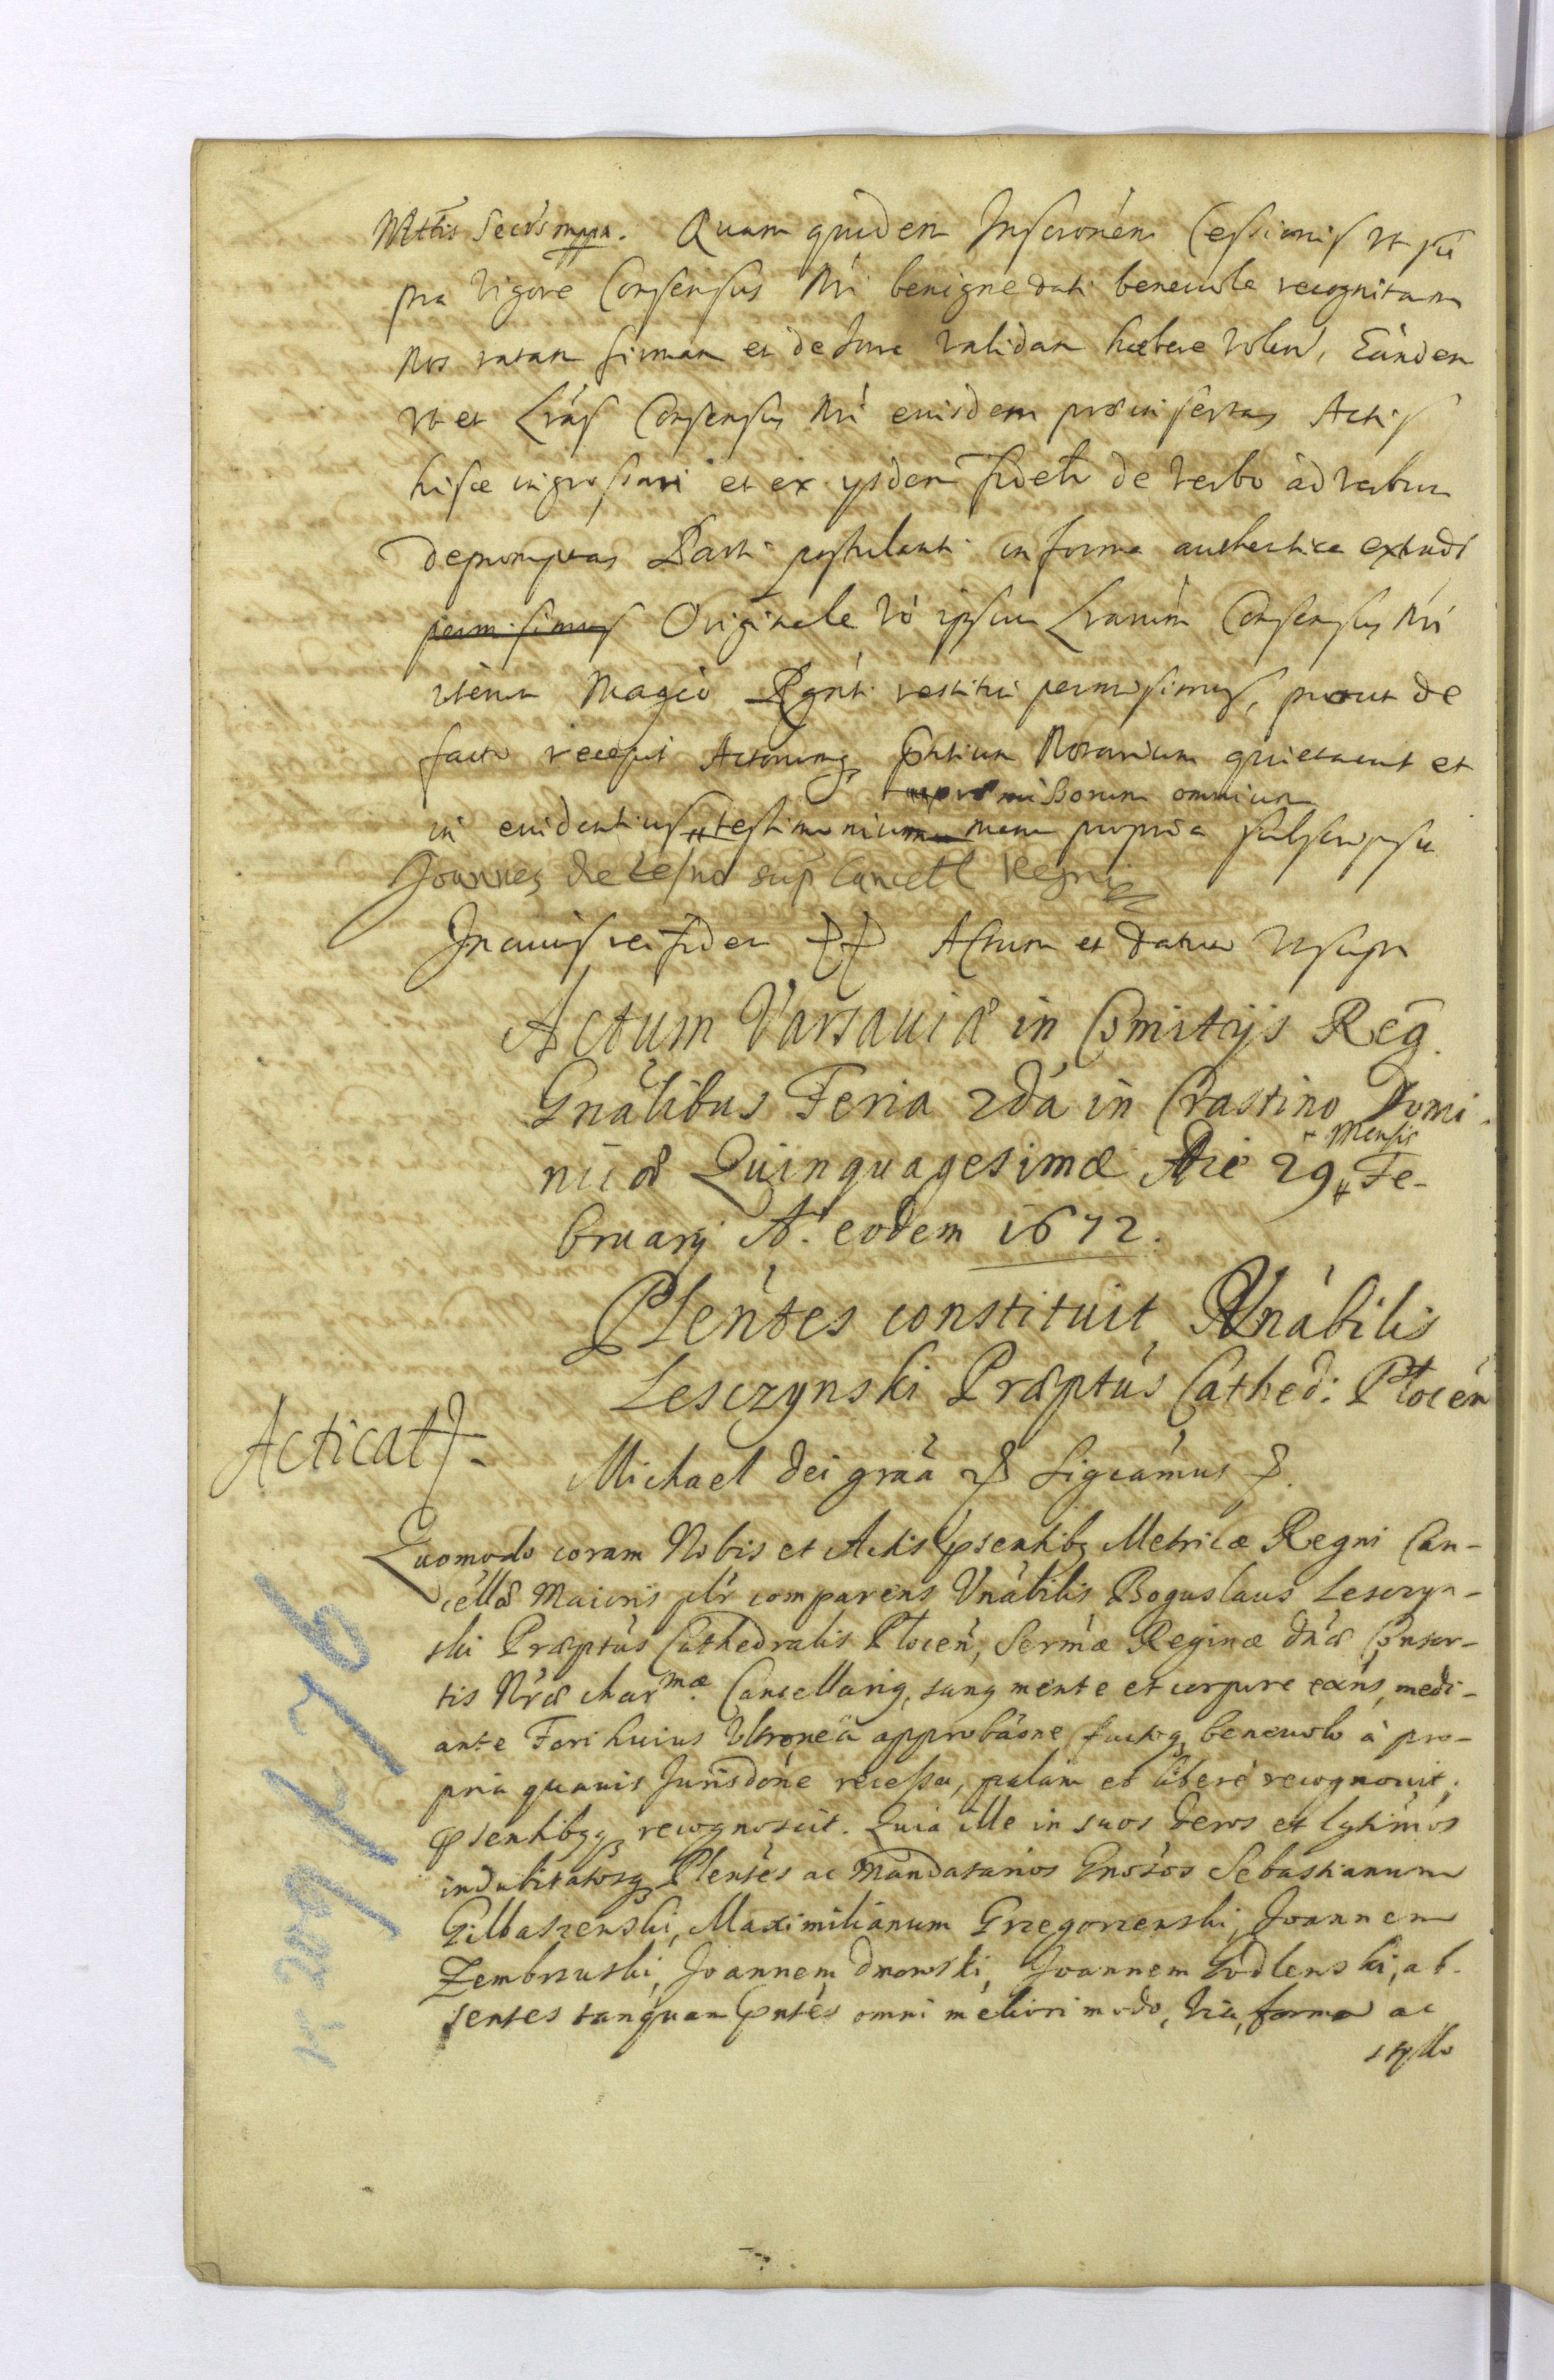 Mttis Secrs mppa. Quam quidem Inscrönem Cessionis ut su
pra vigore Consensus Nri benigne dati benevole recognitam
Nos ratam firmam et de Jure validam habere volen, Eandem
ut et Lras Consensus Nri eiusdem præinsertas Actis
hisce ingrossari et ex ysdem fidelr de verbo ad verbum
depromptas Parti postulanti in forma authentica extradi
permisimus Originale vo ipsum Lrarum Consensus Nri
iterum Magco Rgnti restitui permisimus, prout de
facto recepit Actorumq pntium Notarium quietavit et
præmissorum omnium
in evidentius testimonium manu propria subscripsit
Joannes de Leszno sup Cancell Regni
In cuius rei fidem Actum et datum ut supra
Actum Varsaviæ in Comitijs Reg.
Gnalibus Feria 2da in Crastino Domi
nicæ Quinquagesimæ Die 29 Fe-
Mensis
bruarij A. eodem 1672.
Plentes constituit Vnabilis
Lesczynski Præptus Cathed: Plocen
Acticat
Michael Dei graa Sigcamus
Quomodo coram Nobis et Actis psentibq Metricæ Regni Can-
cellæ Maioris plr comparens Vnabilis Boguslaus Lesczyn-
ski Præptus Cathedralis Plocen, Sermæ Reginæ Dnæ Consor-
tis Nræ charmæ Cancellariq, sanq mente et corpore exns, medi-
ante Fori huius Ultronea approbaone factoq benevolo à pro-
pria quavis Jurisdone recessu, palam et libere recognovit,
psentibqq recognoscit. Quia ille in suos veros et lgtimos
indubitatosq Plentes ac Mandatarios Gnosos Sebastianum
Gilbaszewski, Maximilianum Grzegorzewski, Joannem
Zembrzuski, Joannem Dmowski, Joannem Godlewski, ab-
sentes tanquam pntes omni meliori modo, via, forma ac
stylo